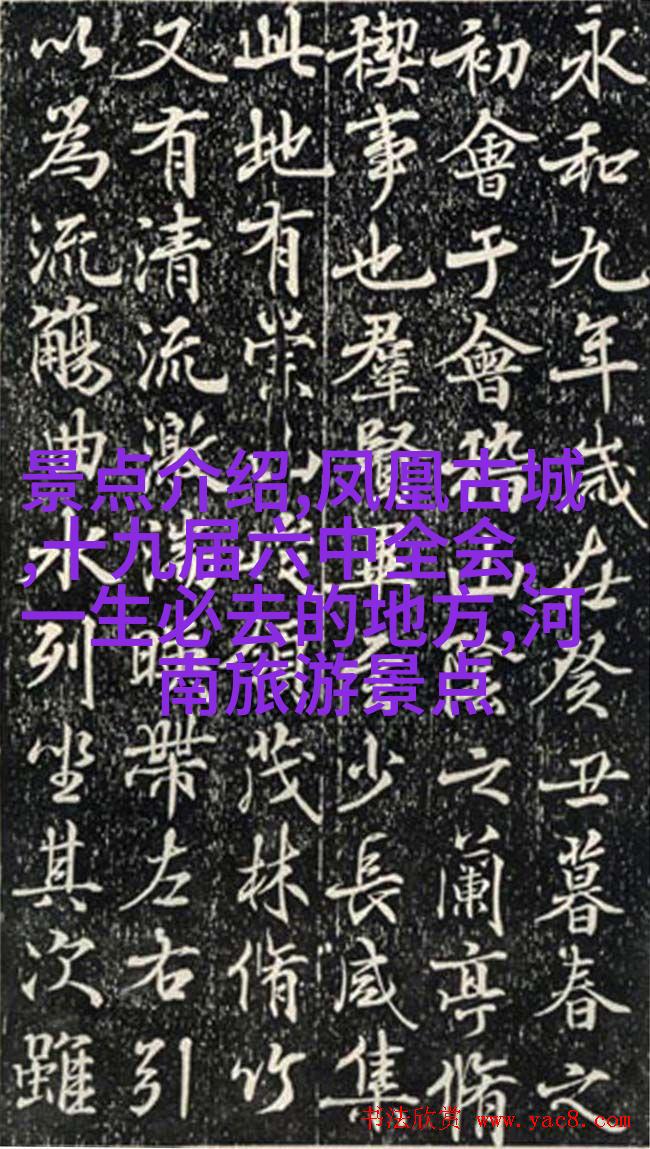 永和九年歲在癸丑暮春之
初會于會稽山陰之蘭亭脩
稧事也羣賢畢少長咸集
此地有崇山茂林脩竹
又有清流激帶左右引
以為流觴曲水列坐其次雖
景点介绍,凤凰古城
,十九届六中全会,
一生必去的地方,河
南旅游景点
书法欣赏 www.yac8.com